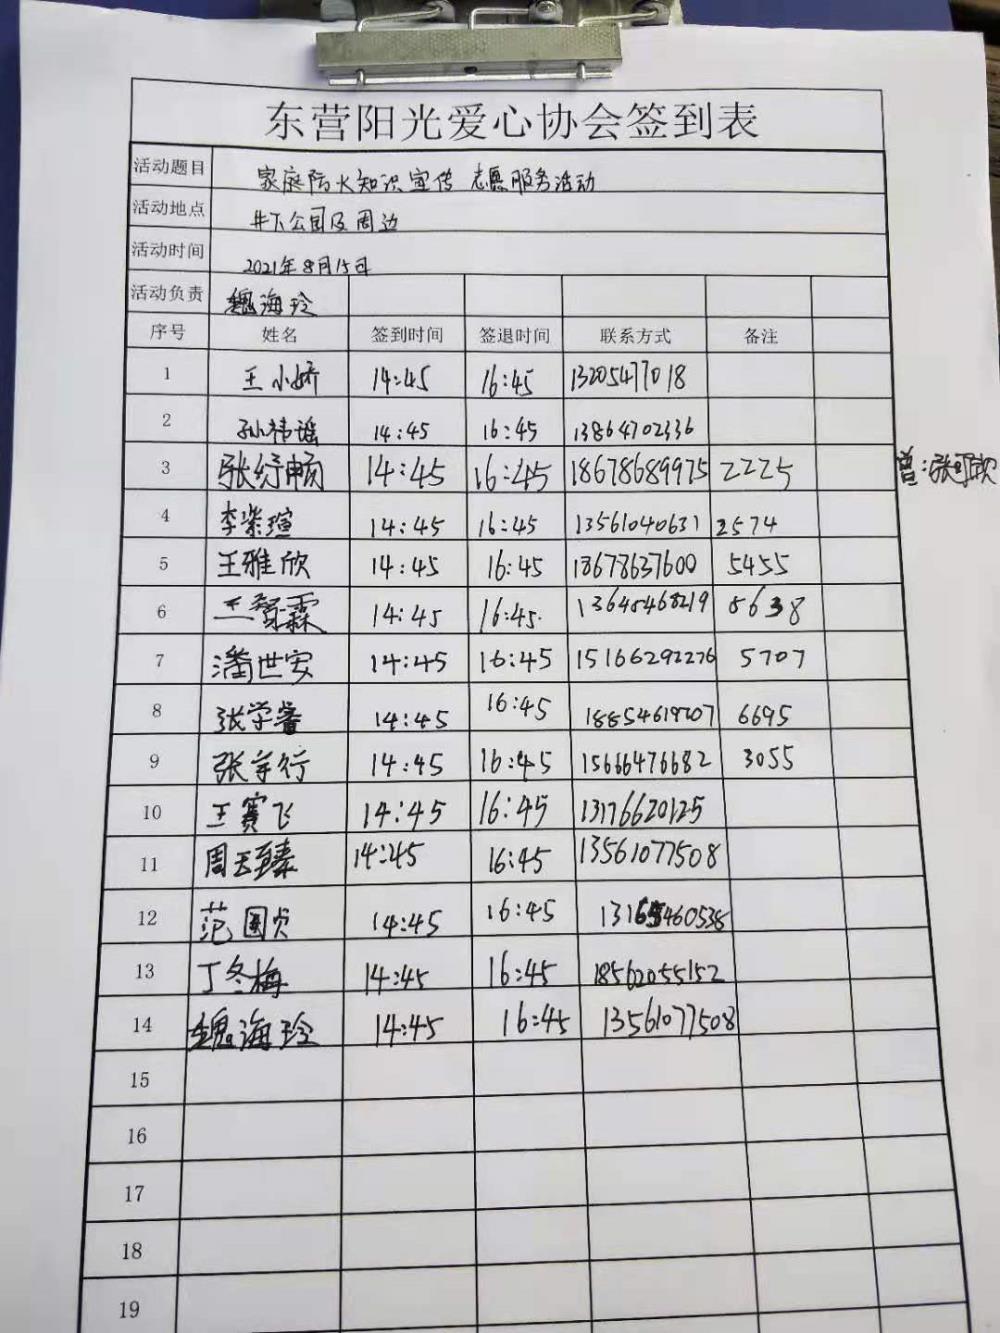 东营阳光爱心协会签到表
活动题目 家庭防火知识宣传 志愿服务活动
活动地点 井下公园及周边
活动时间 2021年8月15日
活动负责 魏海玲
序号 姓名 签到时间 签退时间 联系方式 备注
1 王小娇 14:45 16:45 13205477018
2 孙祎谣 14:45 16:45 13864702336
3 张纾畅 14:45 16:45 18678689975 2225 曾:张可欣
4 李紫瑄 14:45 16:45 13561040631 2574
5 王雅欣 14:45 16:45 18678637600 5455
6 王智霖 14:45 16:45. 13645468219 5638
7 潘世安 14:45 16:45 15166292276 5707
8 张学睿 14:45 16:45 18854619207 6695
9 张宇行 14:45 16:45 15666476682 3055
10 王赛飞 14:45 16:45 13176620125
11 周玉臻 14:45 16:45 13561077508
12 范国贞 14:45 16:45
13 丁冬梅 14:45 16:45 18562055152
14 魏海玲 14:45 16:45 13561077508
15
16
17
18
19